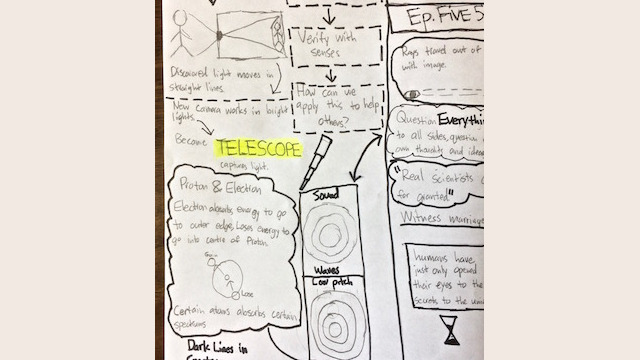 Discovered light moves in
straight lines.
New camera works in bright
lights.
Become TELESCOPE
captures light.
Proton & Electron
Electron absorbs energy to go
to outer edge, Loses energy to
go into centre of Proton.
Gain
Lose
Certain atoms absorbs certain
spectrums
Dark Lines in
Verify with
senses
How can we
apply this to help
others?
Sound
Waves
Low pitch
Ep. Five 5
Rays travel out of
with image.
Question Everythi
to all sides, question
own thoughts and idea
"Real scientists
for granted"
Witness marriag
humans have
just only opened
their eyes to the
secrets to the